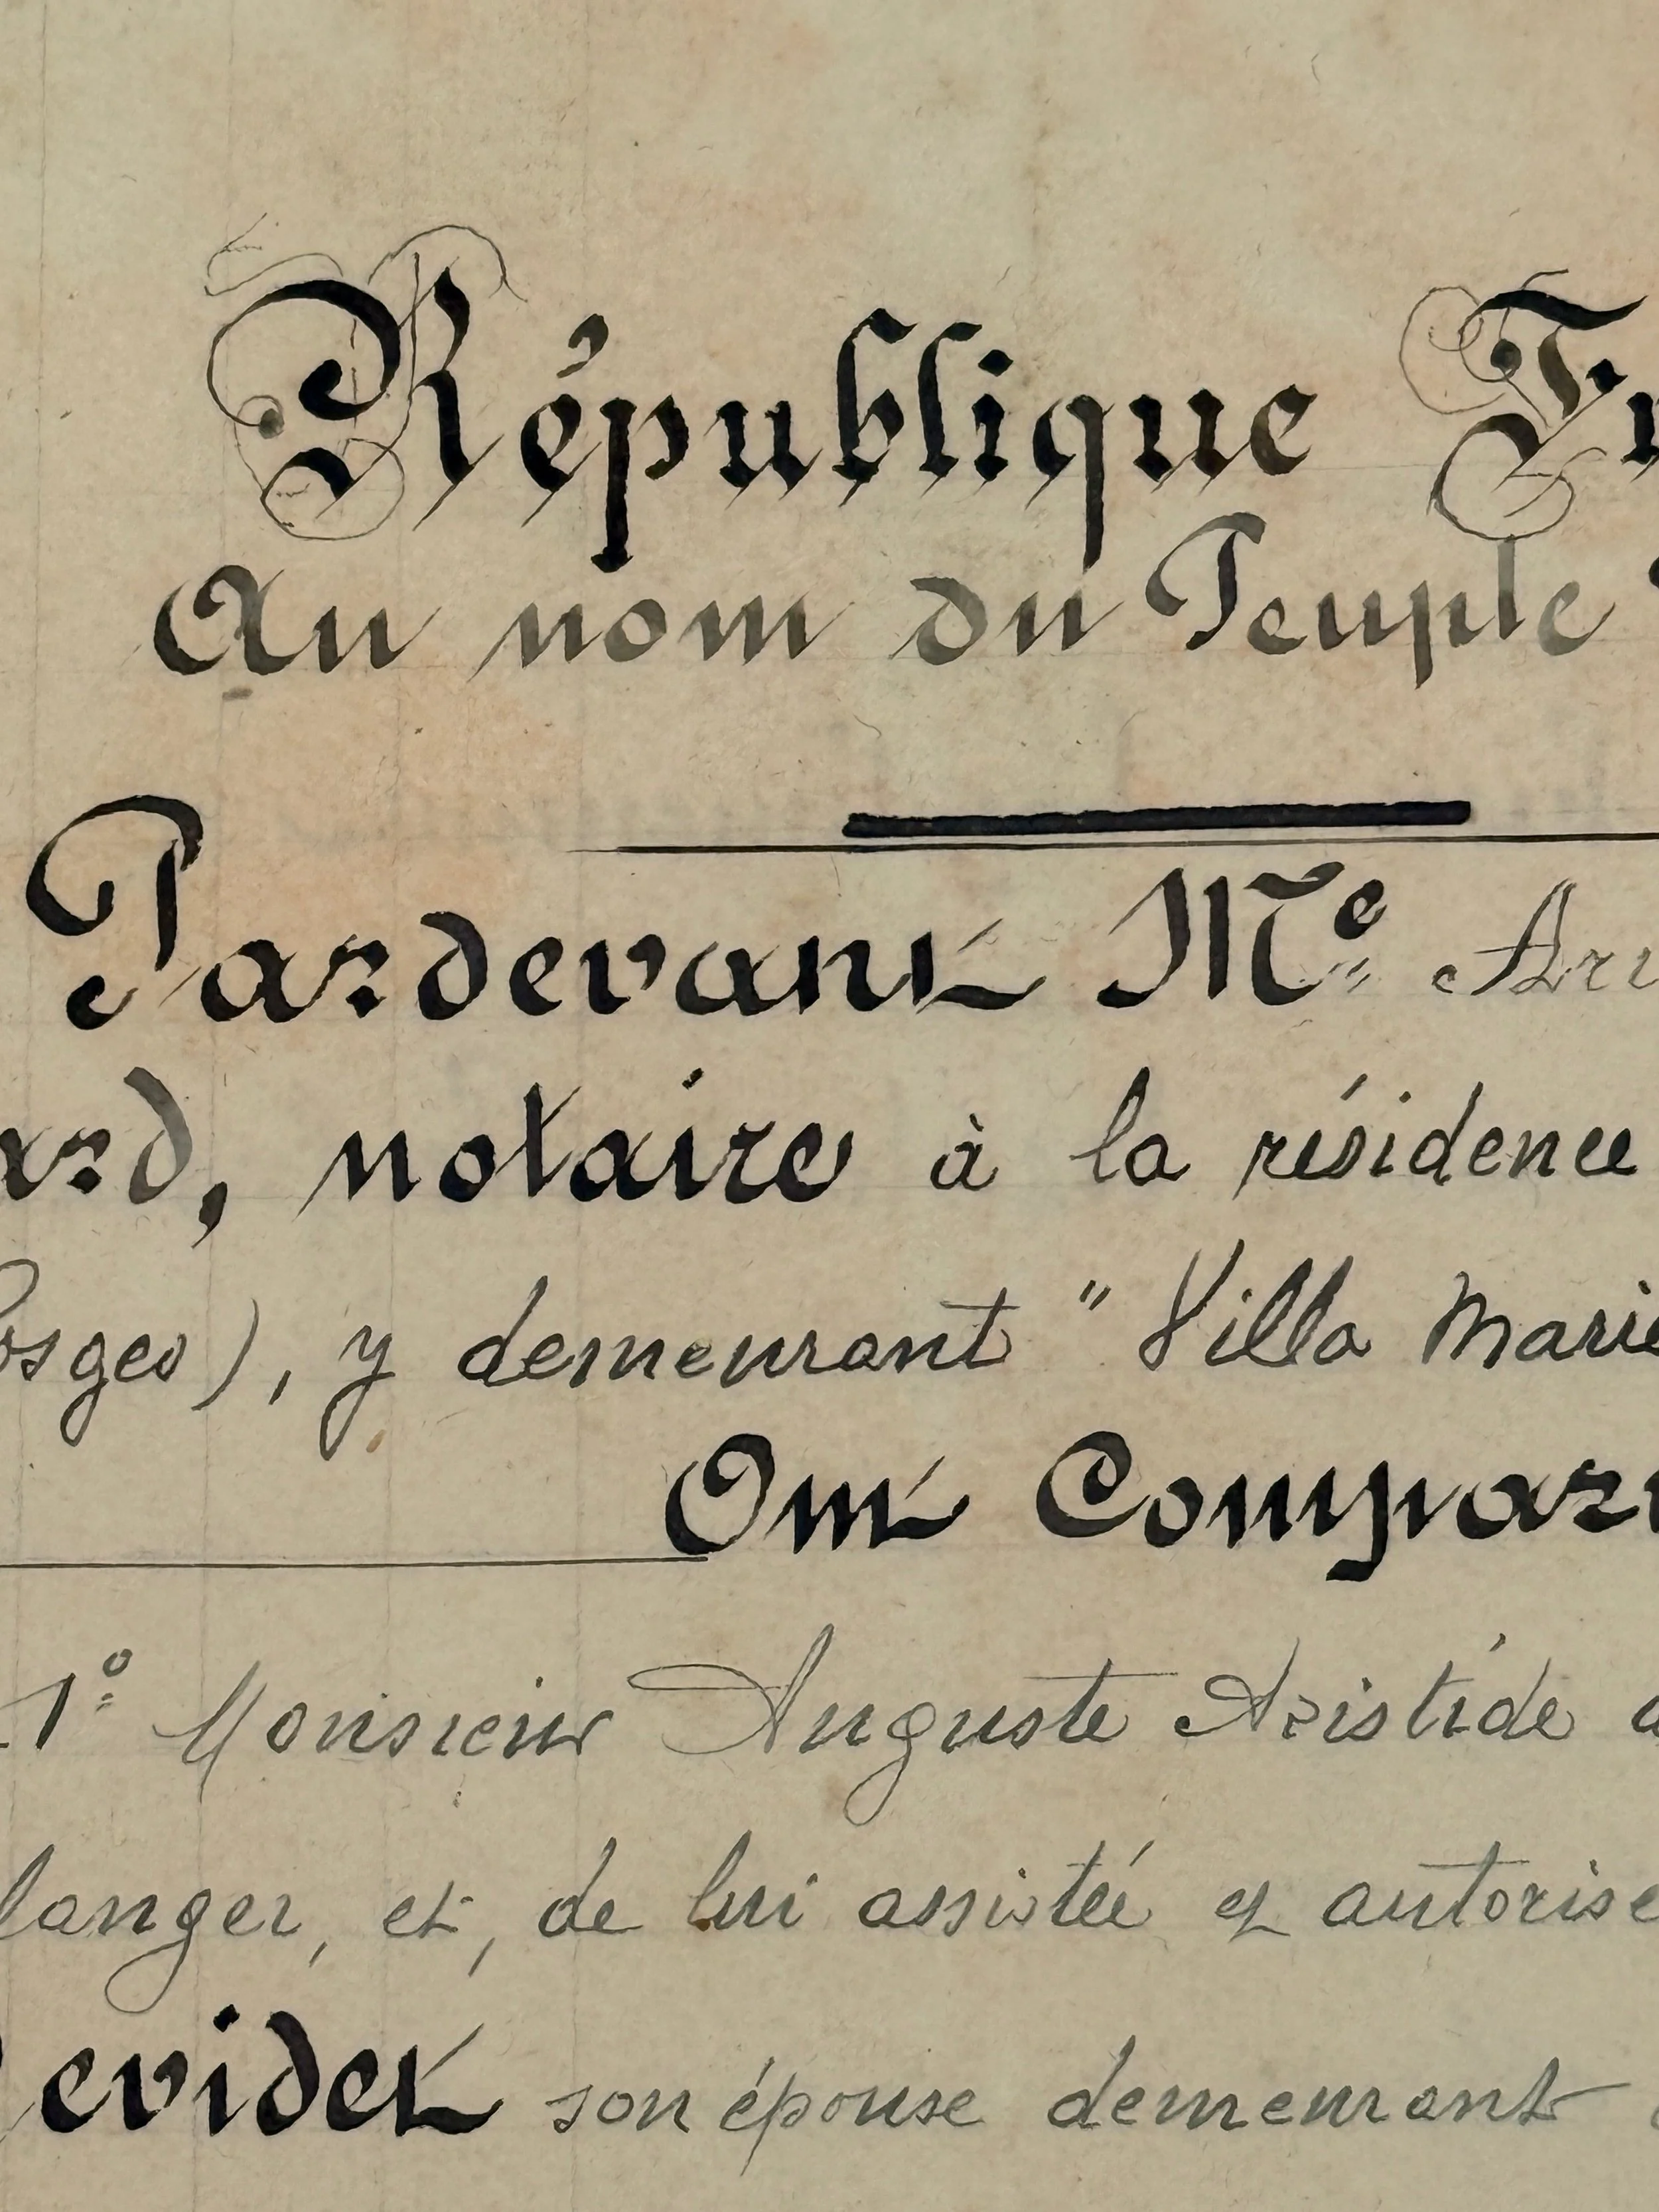 République Fr
Au nom du Peuple
Pardevant Me Arr
ard, notaire à la résidence
osges), y demeurant "Villa Marie
Ont Compar
1° Monsieur Auguste Aristide
langer, et, de lui assistée et autorisé
evidet son épouse demeurant